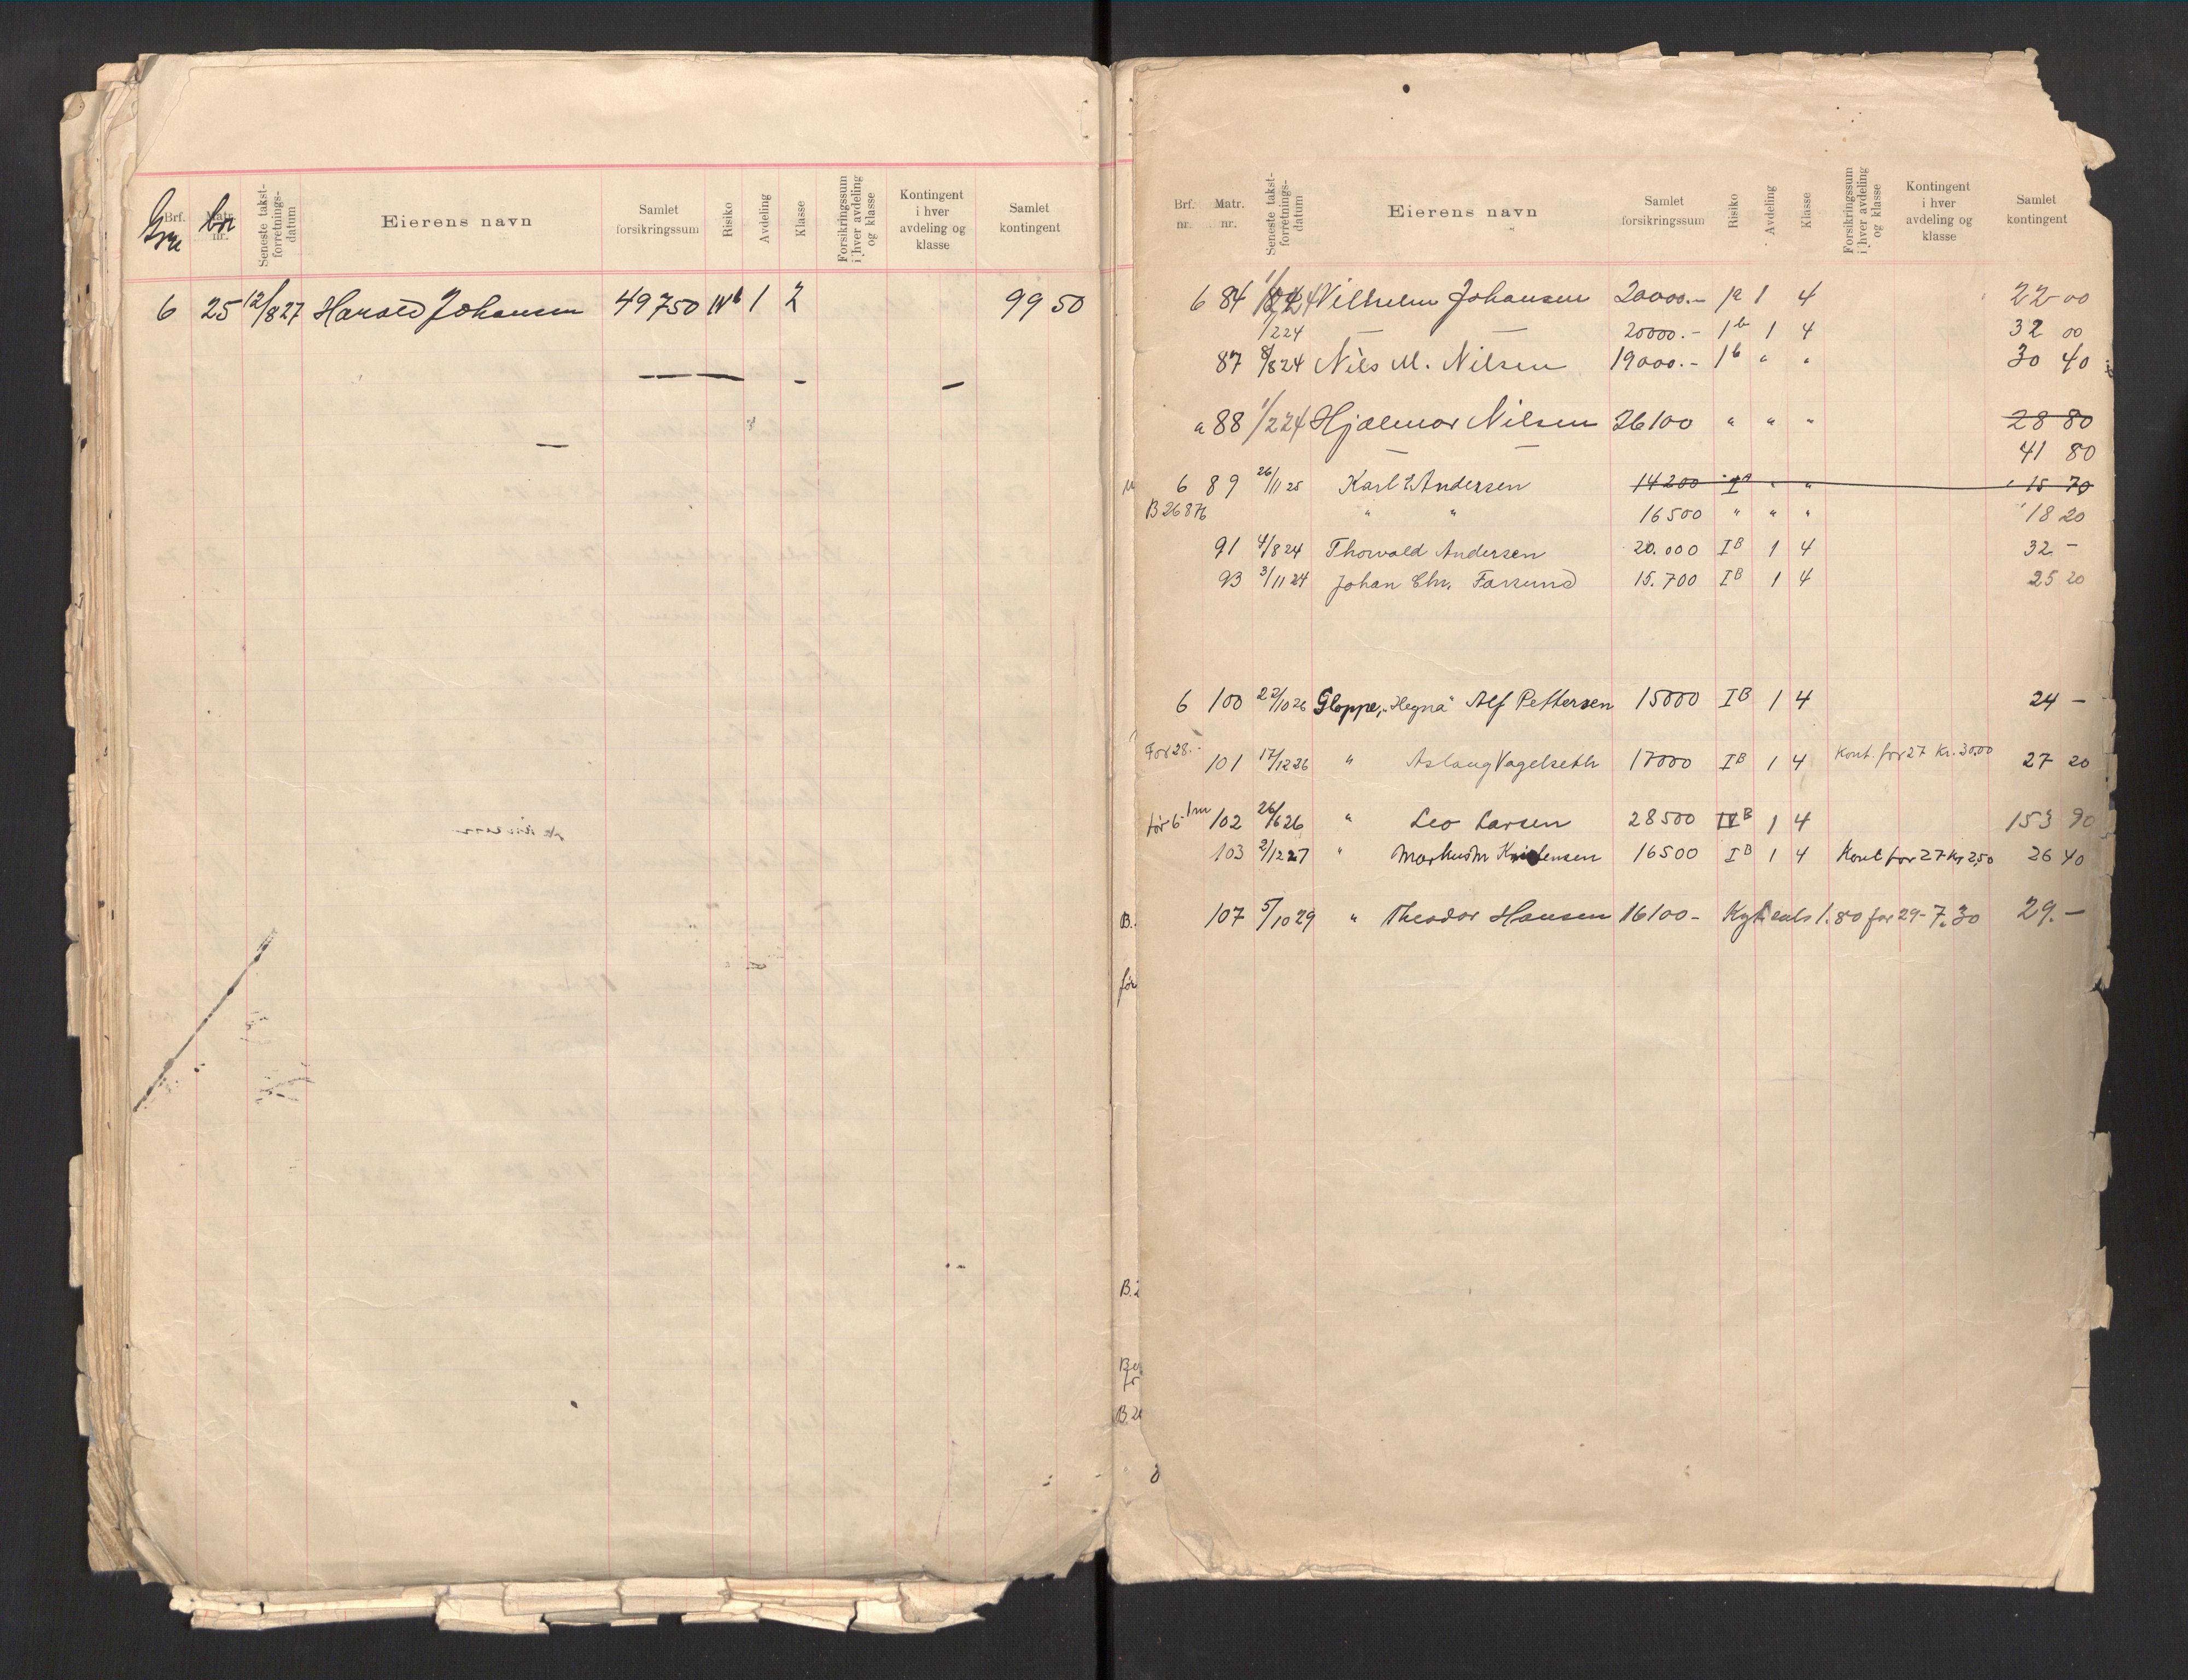 Gnr bnr
Brf. nr. Matr. nr. Seneste takst-forretnings-datum Eierens navn Samlet forsikringssum Risiko Avdeling Klasse Forsikringssum i hver avdeling og klasse Kontingent i hver avdeling og klasse Samlet kontingent
6 25 12/8 27 Harald Johansen 49750 IVb 1 2 99 50
Brf. nr. Matr. nr. Seneste takst-forretnings-datum Eierens navn Samlet forsikringssum Risiko Avdeling Klasse Forsikringssum i hver avdeling og klasse Kontingent i hver avdeling og klasse Samlet kontingent
6 84 1/2 24 Vilhelm Johansen 20000.- 1a 1 4 22 00
1/2 24 — — 20000.- 1b 1 4 32 00
87 8/8 24 Nils M. Nilsen 19000.- 1b " " 30 40
" 88 1/2 24 Hjalmar Nilsen 26100 " " " 28 80
— — 41 80
6 89 26/11 25 Karl Andersen 14200 Ia " " 15 70
B 26 876 " " 16500 " " " 18 20
91 4/8 24 Thorvald Andersen 20.000 IB 1 4 32 -
93 3/11 24 Johan Chr. Farsund 15.700 IB 1 4 25 20
6 100 22/10 26 Gloppe, "Hegna" Alf Pettersen 15000 IB 1 4 24 -
For 28.-
101 17/12 26 " Aslaug Vagelseth 17000 IB 1 4 Kont. for 27 Kr. 30,00 27 20
før 6- 102 26/6 26 " Leo Larsen 28500 IVB 1 4 153 90
103 2/12 27 " Markus M Kristensen 16500 IB 1 4 Kont for 27 Kr 2,50 26 40
107 5/10 29 " Theodor Hansen 16100- 1.80 for 29- 7.30 29.-
B.
før
B.2
B.26